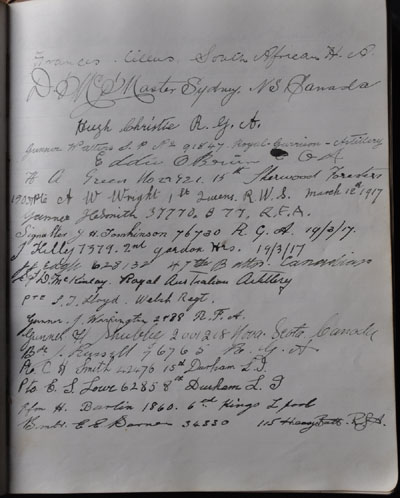 Frances. South African H. A.
D McMaster Sydney N S Canada
Hugh Christie R. G. A.
Gunner Watters J. P No 91847. Royal Garrison Artillery
Eddie O'Brien
H A Green No 15th Sherwood Foresters
Pte A W Wright 1st Queens. R. W. S. March 12th 1917
Gunner H Smith 37770. B 77, R.F.A.
Signaller J H Tomkinson 76730 R. G. A. 19/3/17.
J Kelley 7379. 2nd Gordon Hrs. 19/3/17
628132 47th Battn. Canadian
D. McKinlay. Royal Australian Artillery
Pte S. T. Lloyd. Welsh Regt.
Gunner. J. Warrington 2488 R. F. A.
Gunner H. 2001218 Nova Scotia, Canada
Br J. Russell 76765 R. G. A
Pte C H Smith 42476 15th Durham L. I.
Pte E. S. Lowe 62858 8th Durham L. I
Rfm H. Barlin 1860. 6th Kings L pool
E E 34830 115 Heavy Batt. R.G.A.